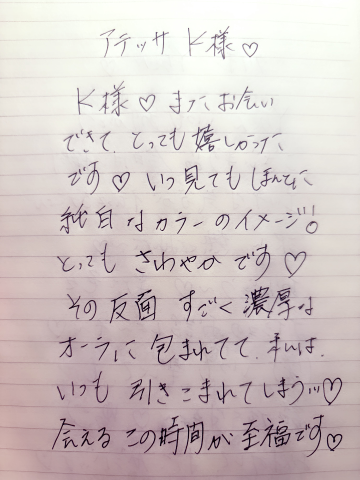 アテッサ K様♡
K様♡ またお会い
できて、とっても嬉しかった
です♡ いつ見てもほんとに
純白なカラーのイメージ!
とっても さわやか です♡
その反面 すごく濃厚な
オーラに包まれてて、私は、
いつも 引きこまれてしまう…♡
会える この時間が 至福です♡